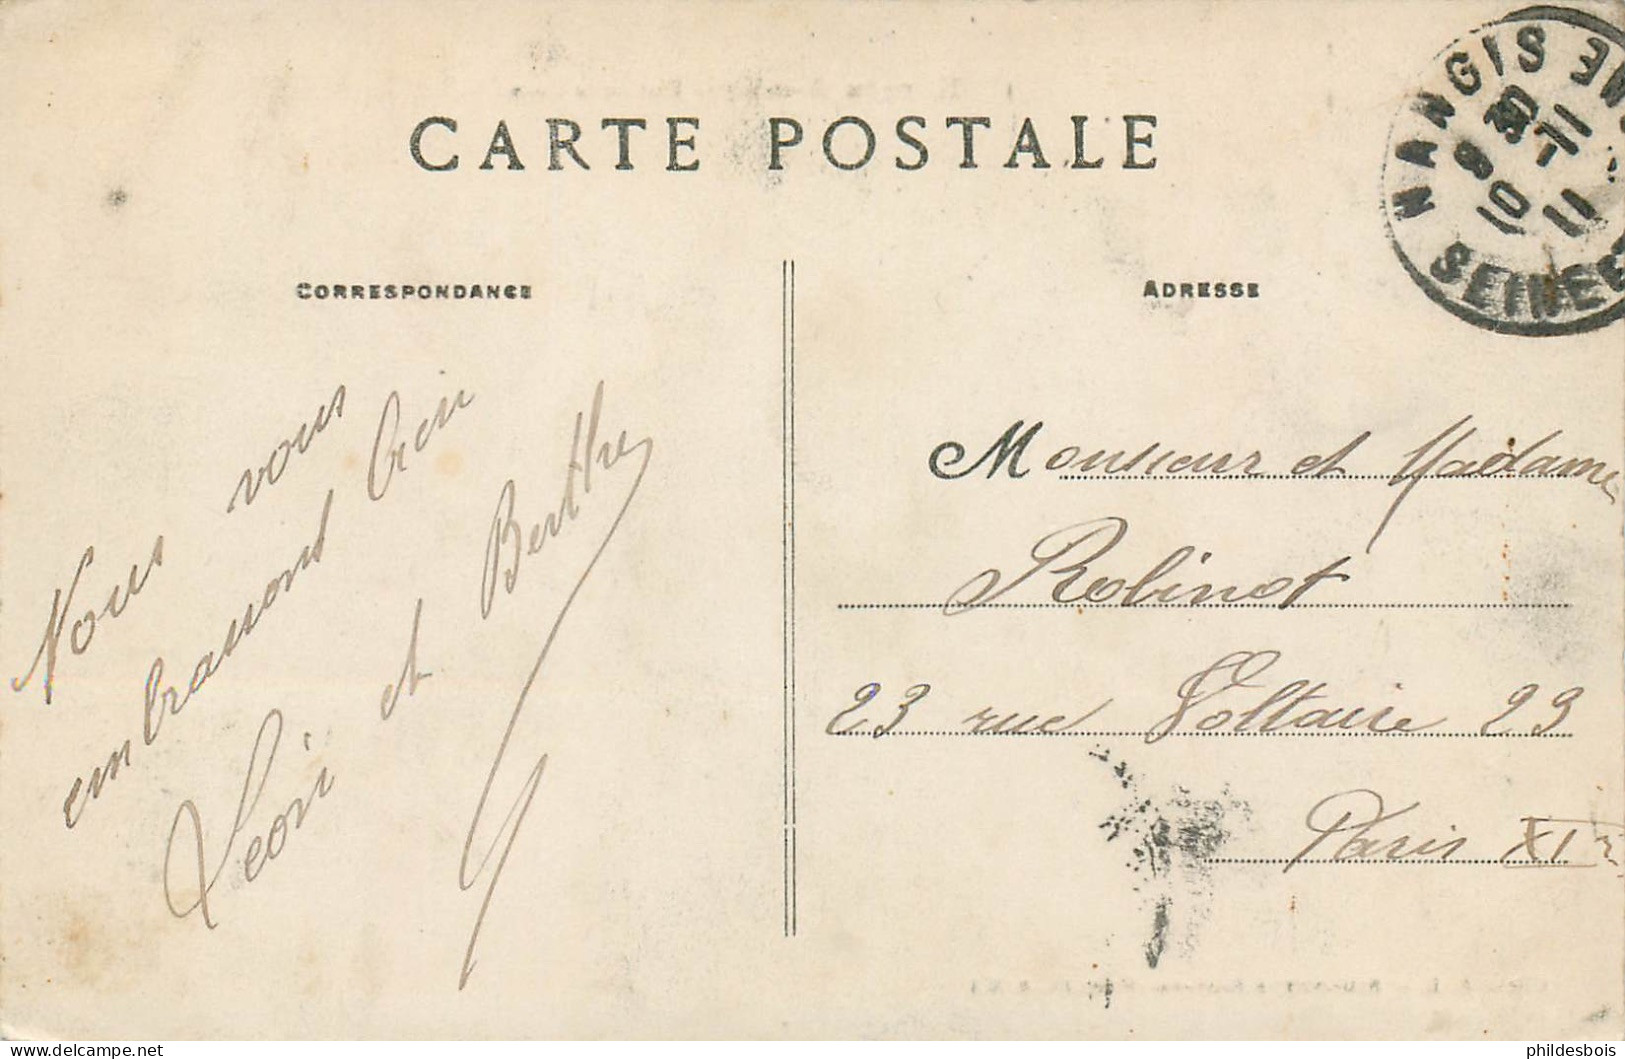 CARTE POSTALE
CORRESPONDANCE
ADRESSE
NANGIS
SEINE
10 11
Nous vous
embrassont bien
Léon et Berthe
Monsieur et Madame
Robinot
23 rue Voltaire 23
Paris XIe
phildesbois